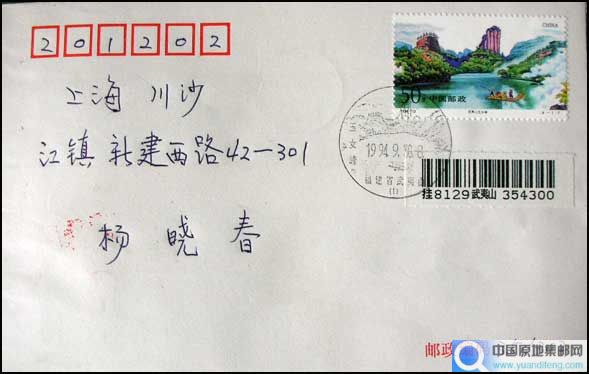 201202
上海 川沙
江镇 新建西路42-301
杨 晓 春
CHINA
50分 中国邮政
玉女峰
1994.9.
福建省武夷山
(1)
挂8129武夷山 354300
邮政
中国原地集邮网
www.yuandifeng.com